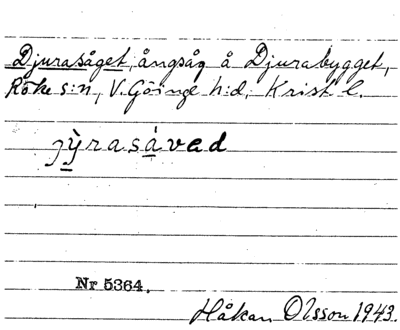 Djurasåget, ångsåg å Djurabygget,
Röke s:n, V. Göinge h:d, Krist l.
jyrasåvad
Nr 5364.
Håkan Olsson 1943.